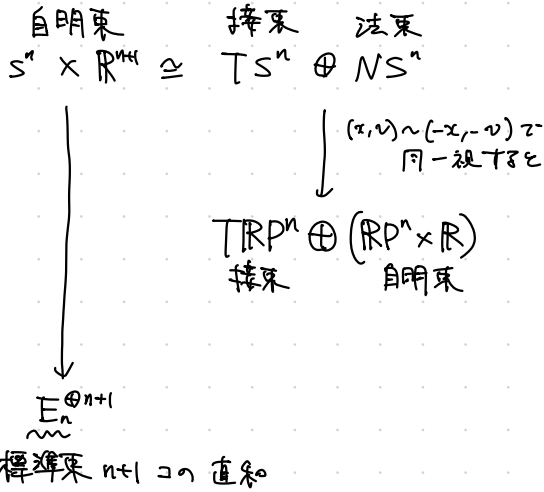 自明束 接束 法束
Sⁿ × ℝⁿ⁺¹ ≃ TSⁿ ⊕ NSⁿ
(x,v)~(-x,-v)で
同一視すると
TRPⁿ ⊕ (RPⁿ×ℝ)
接束 自明束
Eₙ^⊕n+1
標準束 n+1 コの直和